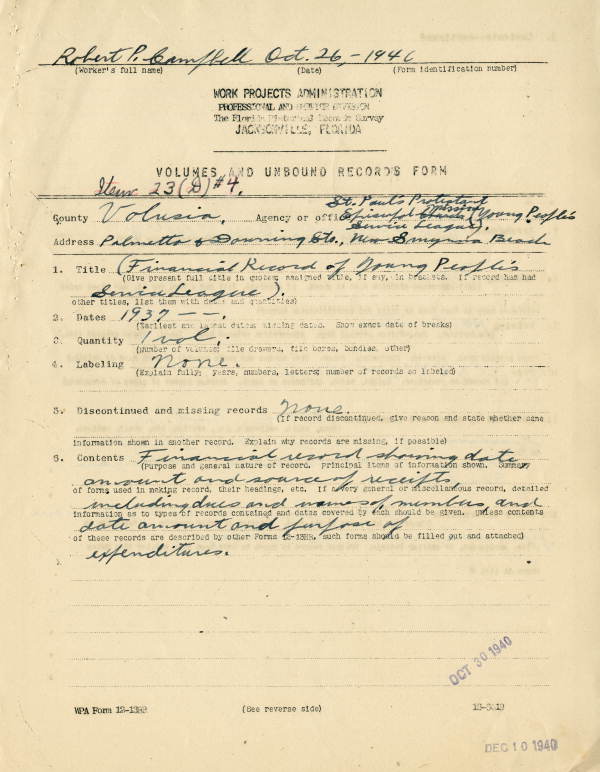 Robert P. Campbell Oct. 26, - 1940
(Worker's full name) (Date) (Form identification number)
WORK PROJECTS ADMINISTRATION
PROFESSIONAL AND SERVICE DIVISION
The Florida Historical Records Survey
JACKSONVILLE, FLORIDA
VOLUMES AND UNBOUND RECORDS FORM
Item 23 (D) #4.
St. Paul's Protestant
County Volusia. Agency or office Episcopal Church Mission (Young People's
Service League).
Address Palmetto & Downing Sts., New Smyrna Beach
1. Title (Financial Record of Young People's
(Give present full title in quotes; assigned title, if any, in brackets. If record has had
Service League).
other titles, list them with dates and quantities)
2. Dates 1937 --.
(Earliest and latest dates; missing dates. Show exact date of breaks)
3. Quantity 1 vol.
(Number of volumes; file drawers, file boxes, bundles, other)
4. Labeling None.
(Explain fully; years, numbers, letters; number of records so labeled)
5. Discontinued and missing records None.
(If record discontinued, give reason and state whether same
information shown in another record. Explain why records are missing, if possible)
6. Contents Financial record showing date
(Purpose and general nature of record. principal items of information shown. Summary
amount and source of receipts
of forms used in making record, their headings, etc. If a very general or miscellaneous record, detailed
including dues and names of members, and
information as to types of records contained and dates covered by each should be given. Unless contents
date amount and purpose of
of these records are described by other Forms 12-13HR, such forms should be filled out and attached)
expenditures.
OCT 30 1940
WPA Form 12-13HR (See reverse side)
DEC 10 1940